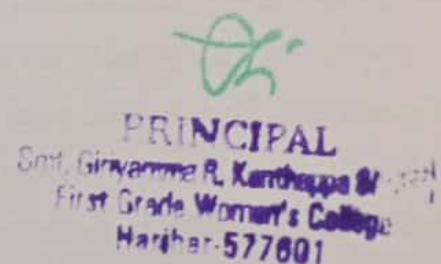 PRINCIPAL
Smt. Giriyamma R. Kanthappa
First Grade Women's College
Harihar-577601